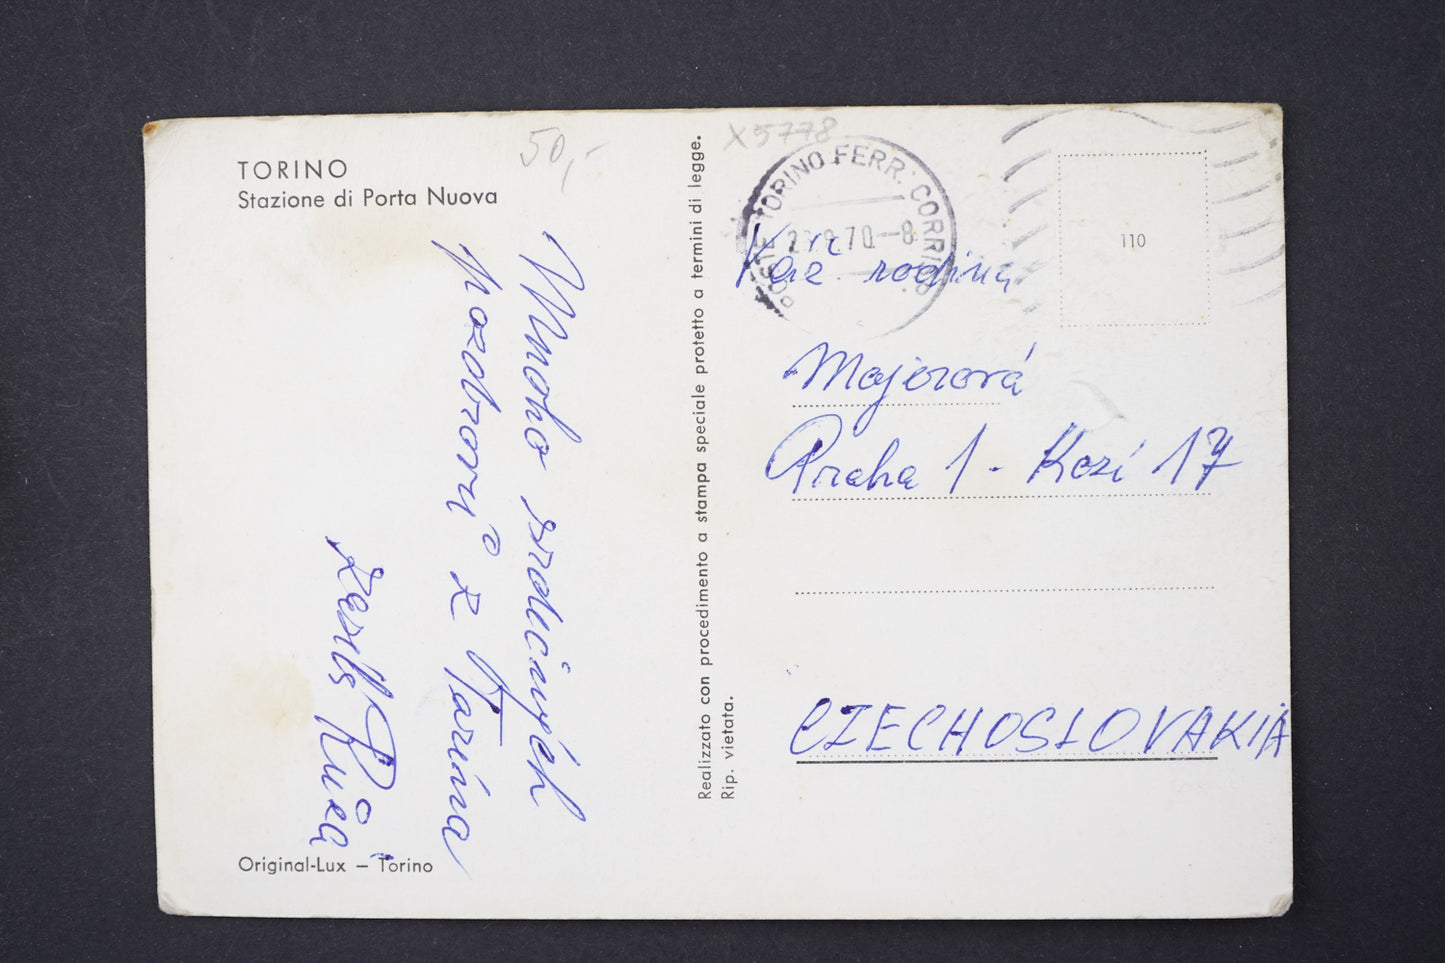 TORINO
Stazione di Porta Nuova
50,-
Mnoho srdečných
pozdravů z Turína
Růža
Original-Lux – Torino
Realizzato con procedimento a stampa speciale protetto a termini di legge.
Rip. vietata.
X5778
POSTE TORINO FERR. CORRISP.
70-8
110
Váž. rodina
Majerová
Praha 1 - Kozí 17
CZECHOSLOVAKIA